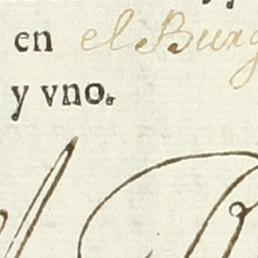 en el Burg
y vno.